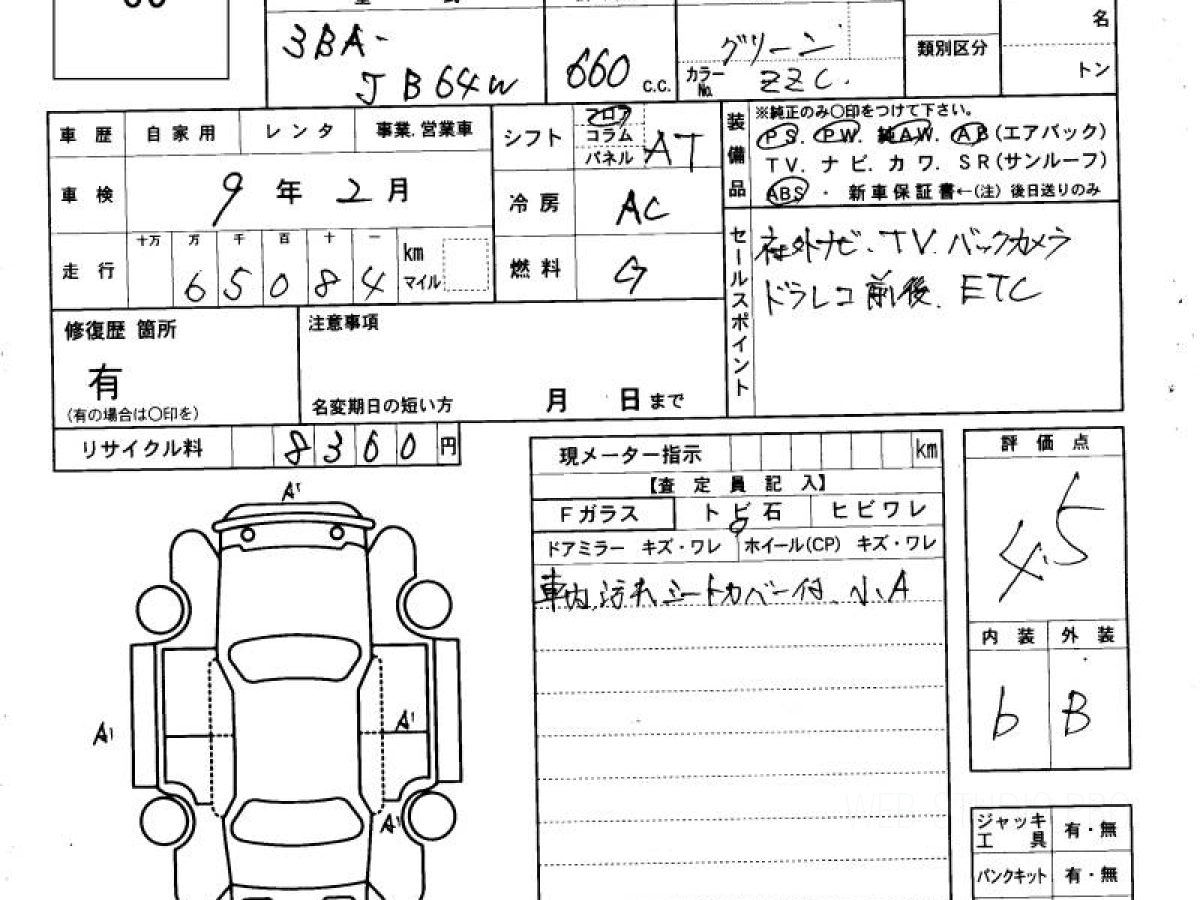 3BA-
JB64W
660 c.c.
グリーン
カラーNo. ZZC.
類別区分
名
トン
車歴 自家用 レンタ 事業.営業車
車検 9年2月
走行 十万 万 千 百 十 一
65084 km マイル
シフト フロア コラム パネル AT
冷房 AC
燃料 G
装備品
※純正のみ〇印をつけて下さい。
PS. PW. 純AW. AB(エアバック)
TV. ナビ. カワ. SR(サンルーフ)
ABS ・ 新車保証書←(注) 後日送りのみ
セールスポイント
社外ナビ、TV.バックカメラ
ドラレコ前後、ETC
修復歴 箇所
有
(有の場合は〇印を)
注意事項
名変期日の短い方 月 日まで
リサイクル料 8360円
現メーター指示 km
【査定員記入】
Fガラス トビ石 ヒビワレ
ドアミラー キズ・ワレ ホイール(CP) キズ・ワレ
車内汚れ シートカバー付、小A
評価点
4.5
内装 外装
b B
A1
A1
A1
A1
ジャッキ工具 有・無
パンクキット 有・無